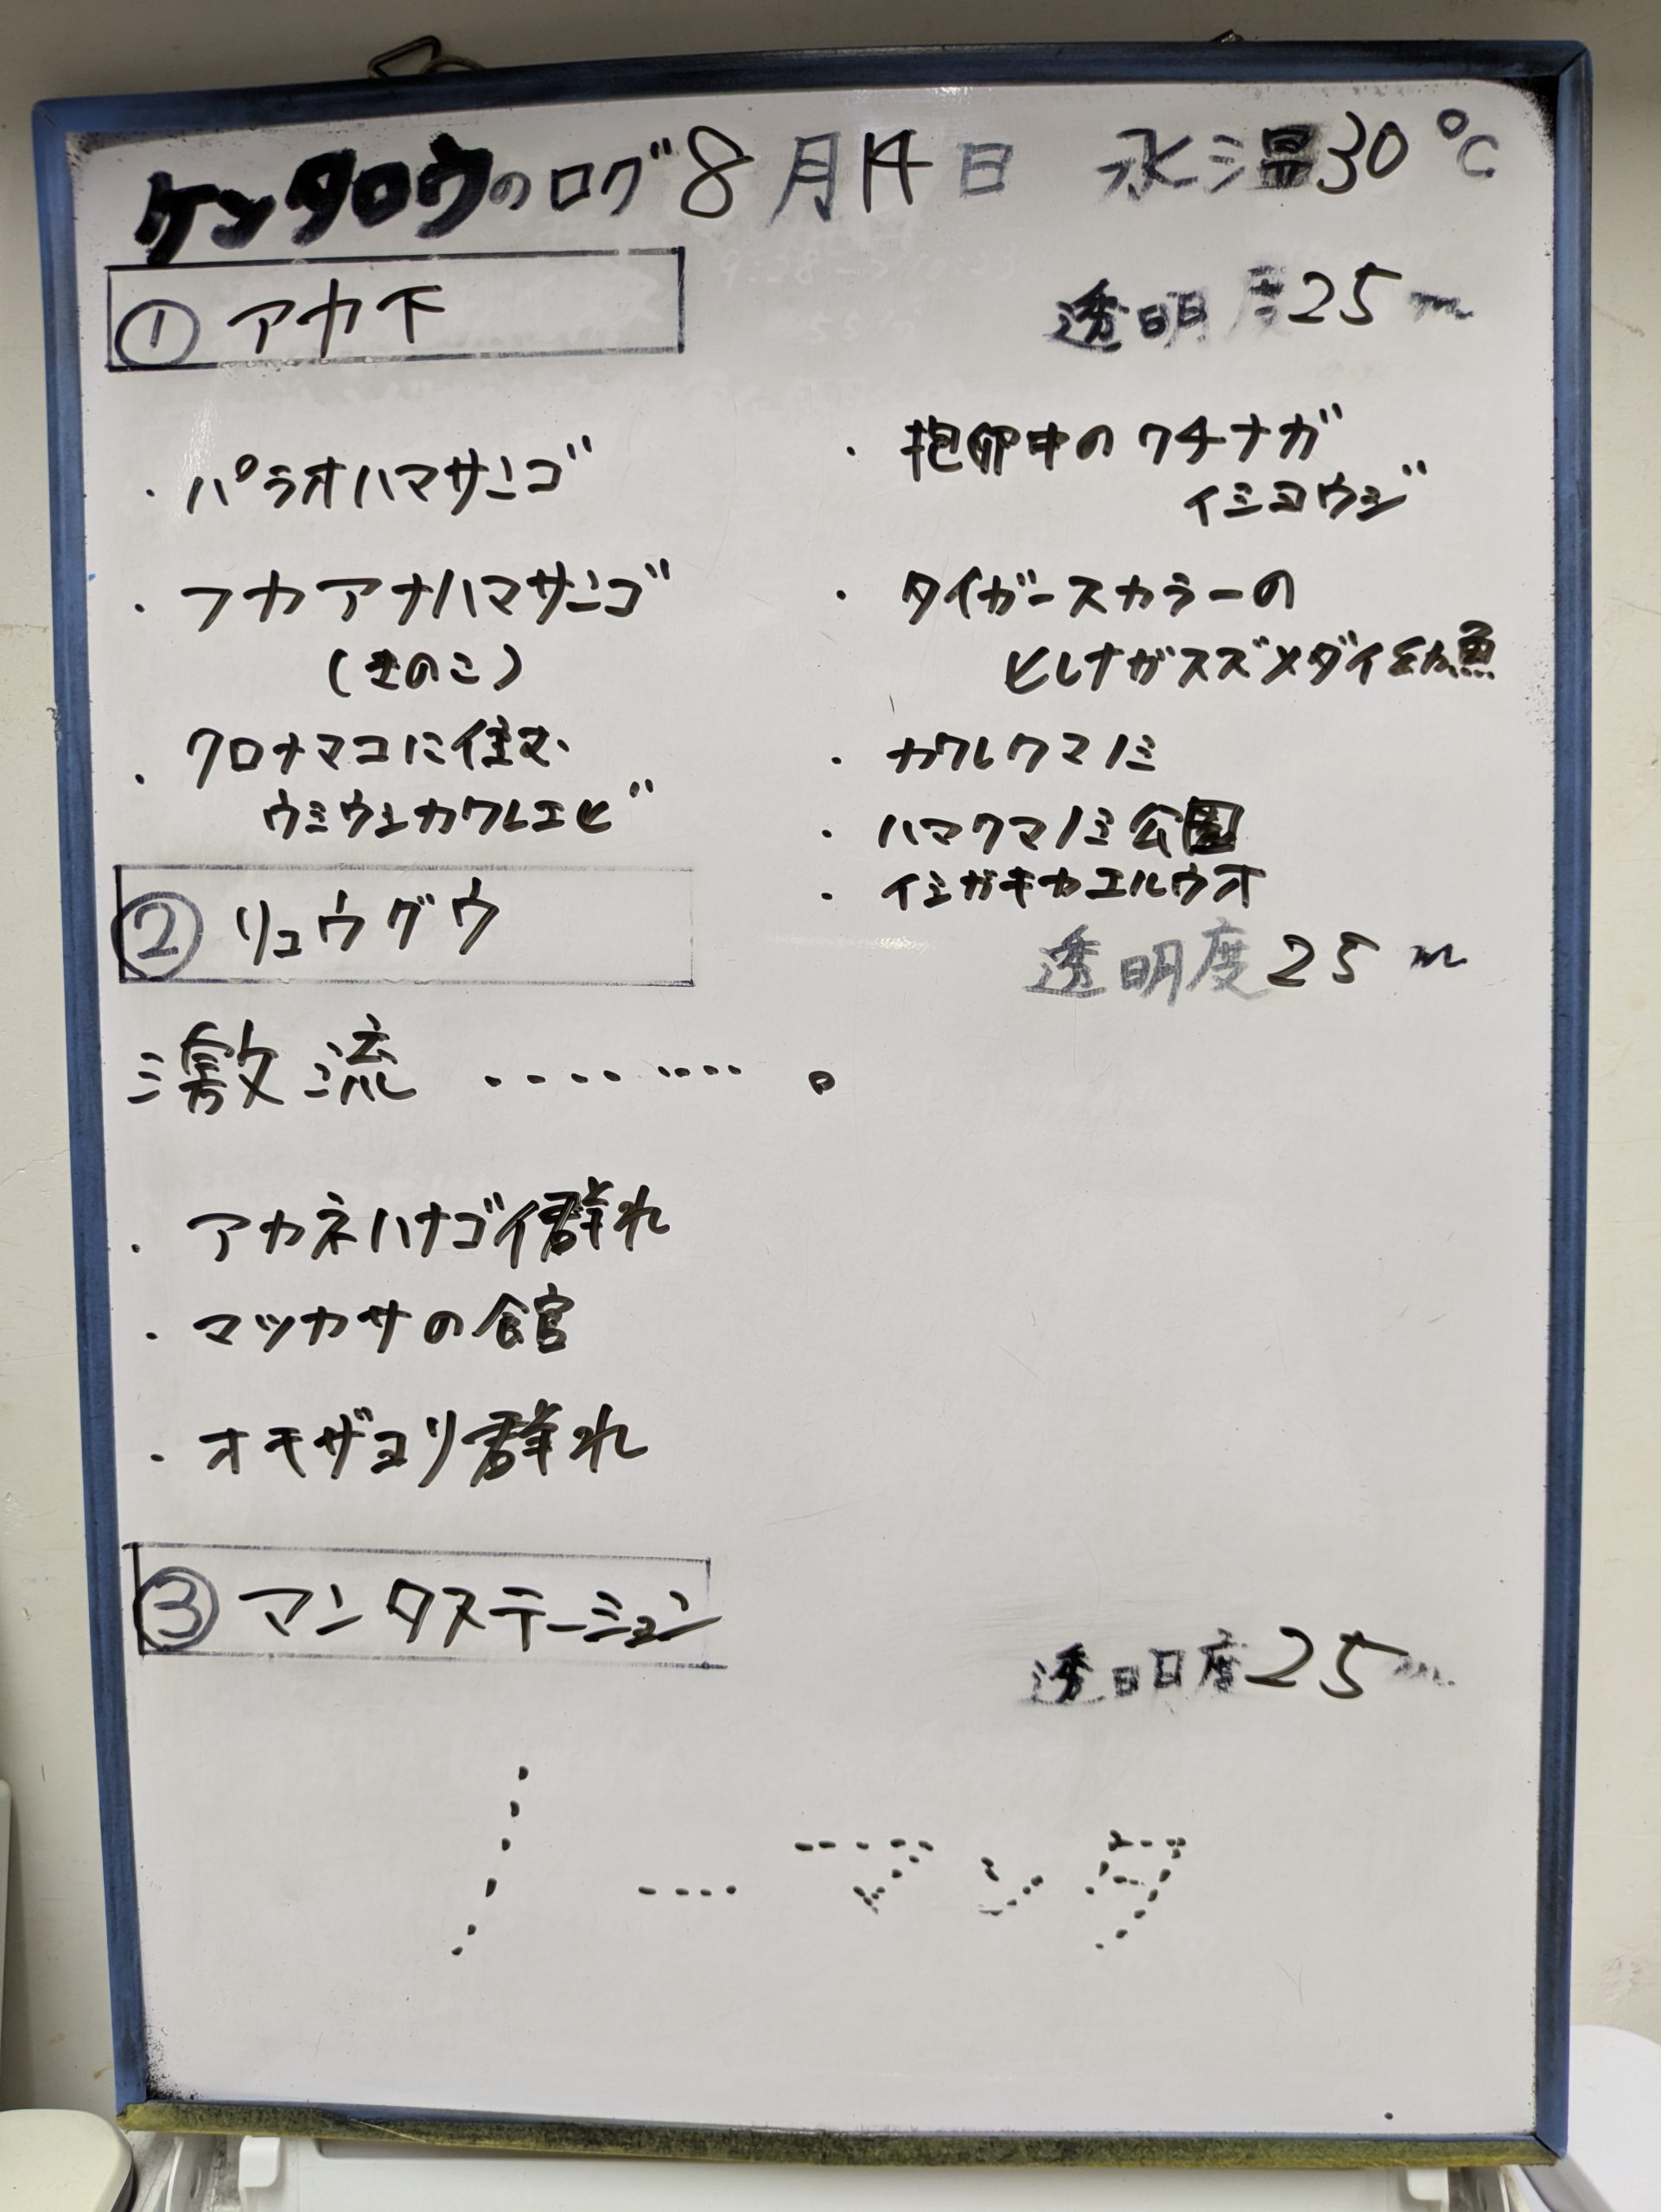 ケンタロウのログ 8月14日 水温30℃
① アカ下
透明度25m
・パラオハマサンゴ
・フカアナハマサンゴ
(きのこ)
・クロナマコに住む
ウミウシカクレエビ
・抱卵中のクチナガ
イシヨウジ
・タイガースカラーの
ヒレナガスズメダイ幼魚
・カクレクマノミ
・ハマクマノミ公園
・イシガキカエルウオ
② リュウグウ
透明度25m
激流‥‥‥‥。
・アカネハナゴイ群れ
・マツカサの館
・オモザヨリ群れ
③ マンタステーション
透明度25m
ノーマンタ